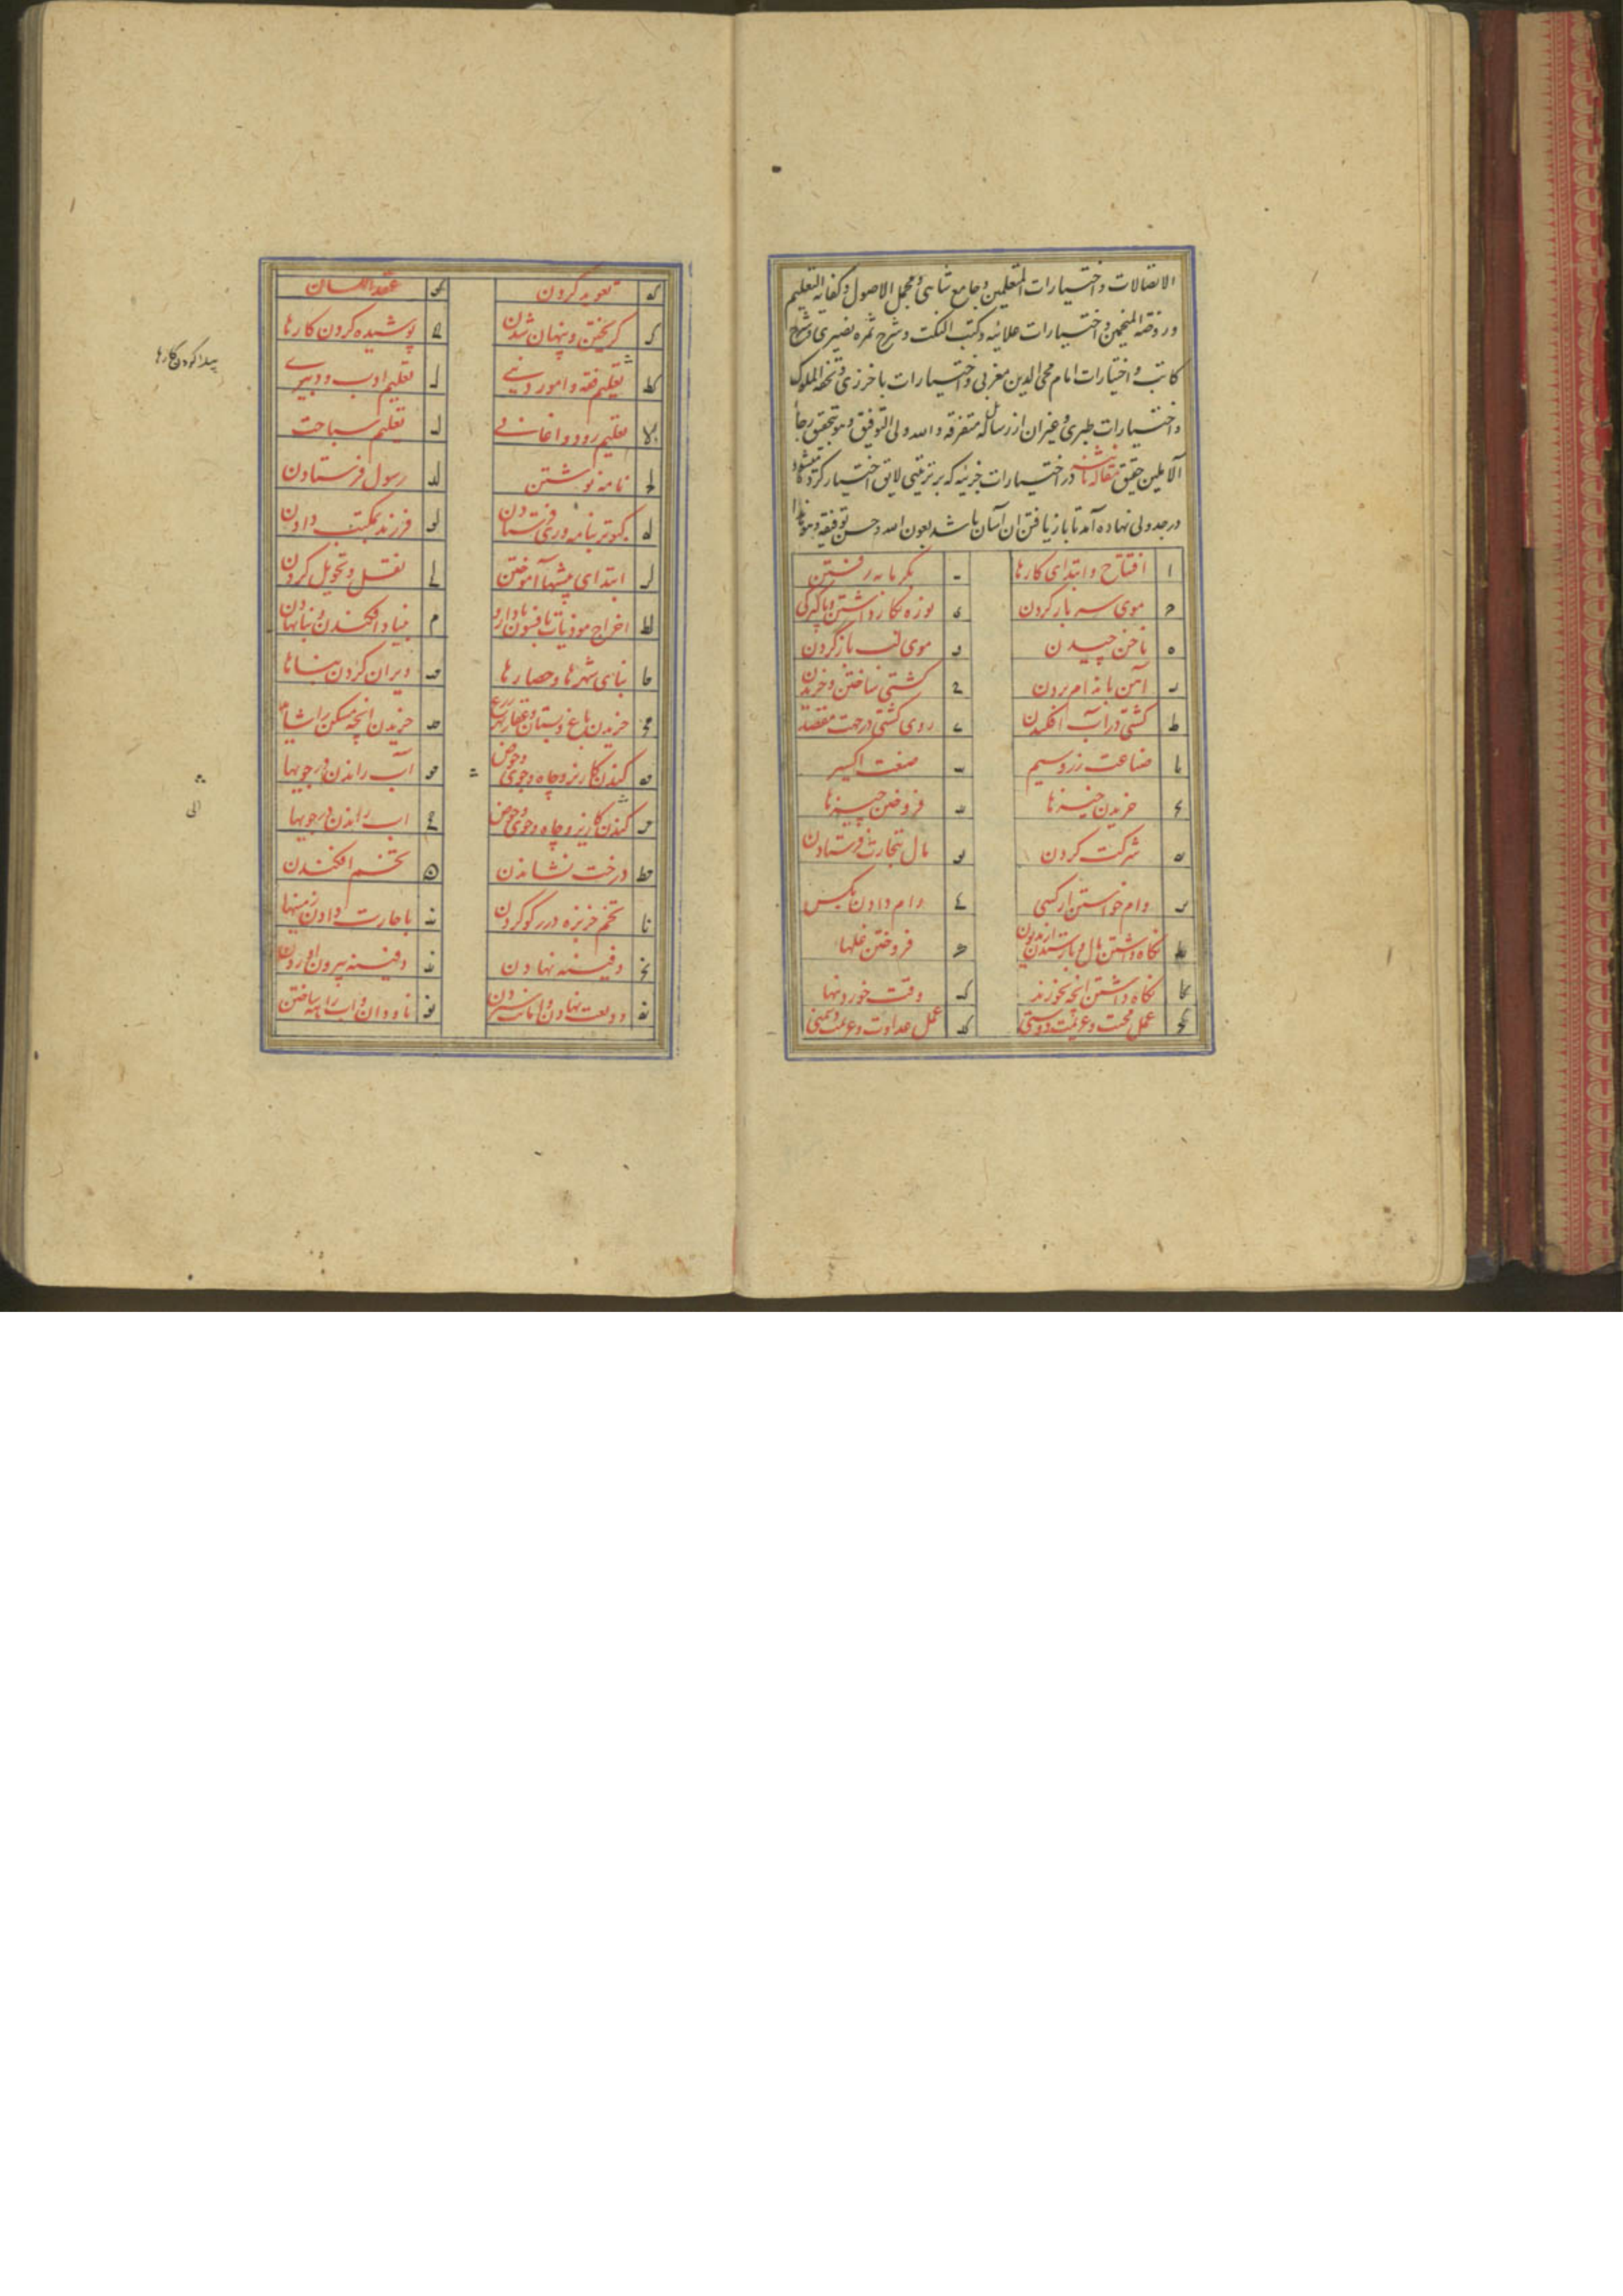 الاتصالات و اختیارات المتعلمین و جامع شاهی و مجمل الاصول و کفایة التعلیم
و روضة المنجمین و اختیارات علائیه و کتب النکت و شرح ثمره نصیری و شرح
کاتب و اختیارات امام محی الدین مغربی و اختیارات باخرزی و تحفة الملوک
و اختیارات طبری و غیر ان از رساله متفرقه و الله ولی التوفیق و هو بتحقیق رجا
الآملین حقیق مقاله در اختیارات جزئیه که بر ترتیبی لایق اختیار کرده
در جدولی نهاده آمد تا باز یافتن ان آسان باشد بعون الله و حسن توفیقه
ا افتتاح و ابتدای کارها ب بگرمابه رفتن
ح موی سر باز کردن د نوره بکار داشتن و پاکی
ه ناخن چیدن و موی لب باز کردن
ر آهن باندام بردن ح کشتی ساختن و خریدن
ط کشتی در آب افکندن ی روی کشتی در جهت مقصد
یا صناعت زر و سیم یب صنعت اکسیر
یح خریدن چیزها ید فروختن چیزها
یه شرکت کردن یو مال بتجارت فرستادن
یر وام خواستن از کسی یح وام دادن بکس
یط نگاه داشتن مال و باز ستدن از مدیون ک فروختن غلها
کا نگاه داشتن انچه بخورند کب وقت خوردنها
کح عمل محبت و عزیمت دوستی کد عمل عداوت و عزیمت دشمنی
که تعویذ کردن کو عقد اللسان
کر گریختن و پنهان شدن کح پوشیده کردن کارها
پیدا کردن کارها
کط تعلیم فقه و امور دینی ل تعلیم ادب و دبیری
لا تعلیم رود و اغانی لب تعلیم سباحت
لح نامه نوشتن لد رسول فرستادن
له کبوتر بنامه وری فرستادن لو فرزند بمکتب دادن
لر ابتدای پیشها آموختن لح نقل و تحویل کردن
لط اخراج موذیات بافسون و بادارو م بنیاد افکندن و بنا نهادن
ما بنای شهرها و حصارها مب ویران کردن بناها
مح خریدن باغ و بستان و عقار مد خریدن انچه مسکن را شاید
مه کندن کاریز و چاه و جوی و حوض مو آب راندن در جویها
مر کندن کاریز و چاه و جوی و حوض مح اب راندن در جویها
الی
مط درخت نشاندن ن تخم افکندن
نا تخم خربزه در گو کردن نب باجارت دادن زمینها
نح دفینه نهادن ند دفینه بیرون اوردن
نه ودیعت نهادن و امانت سپردن نو ناودان و اب راهه ساختن